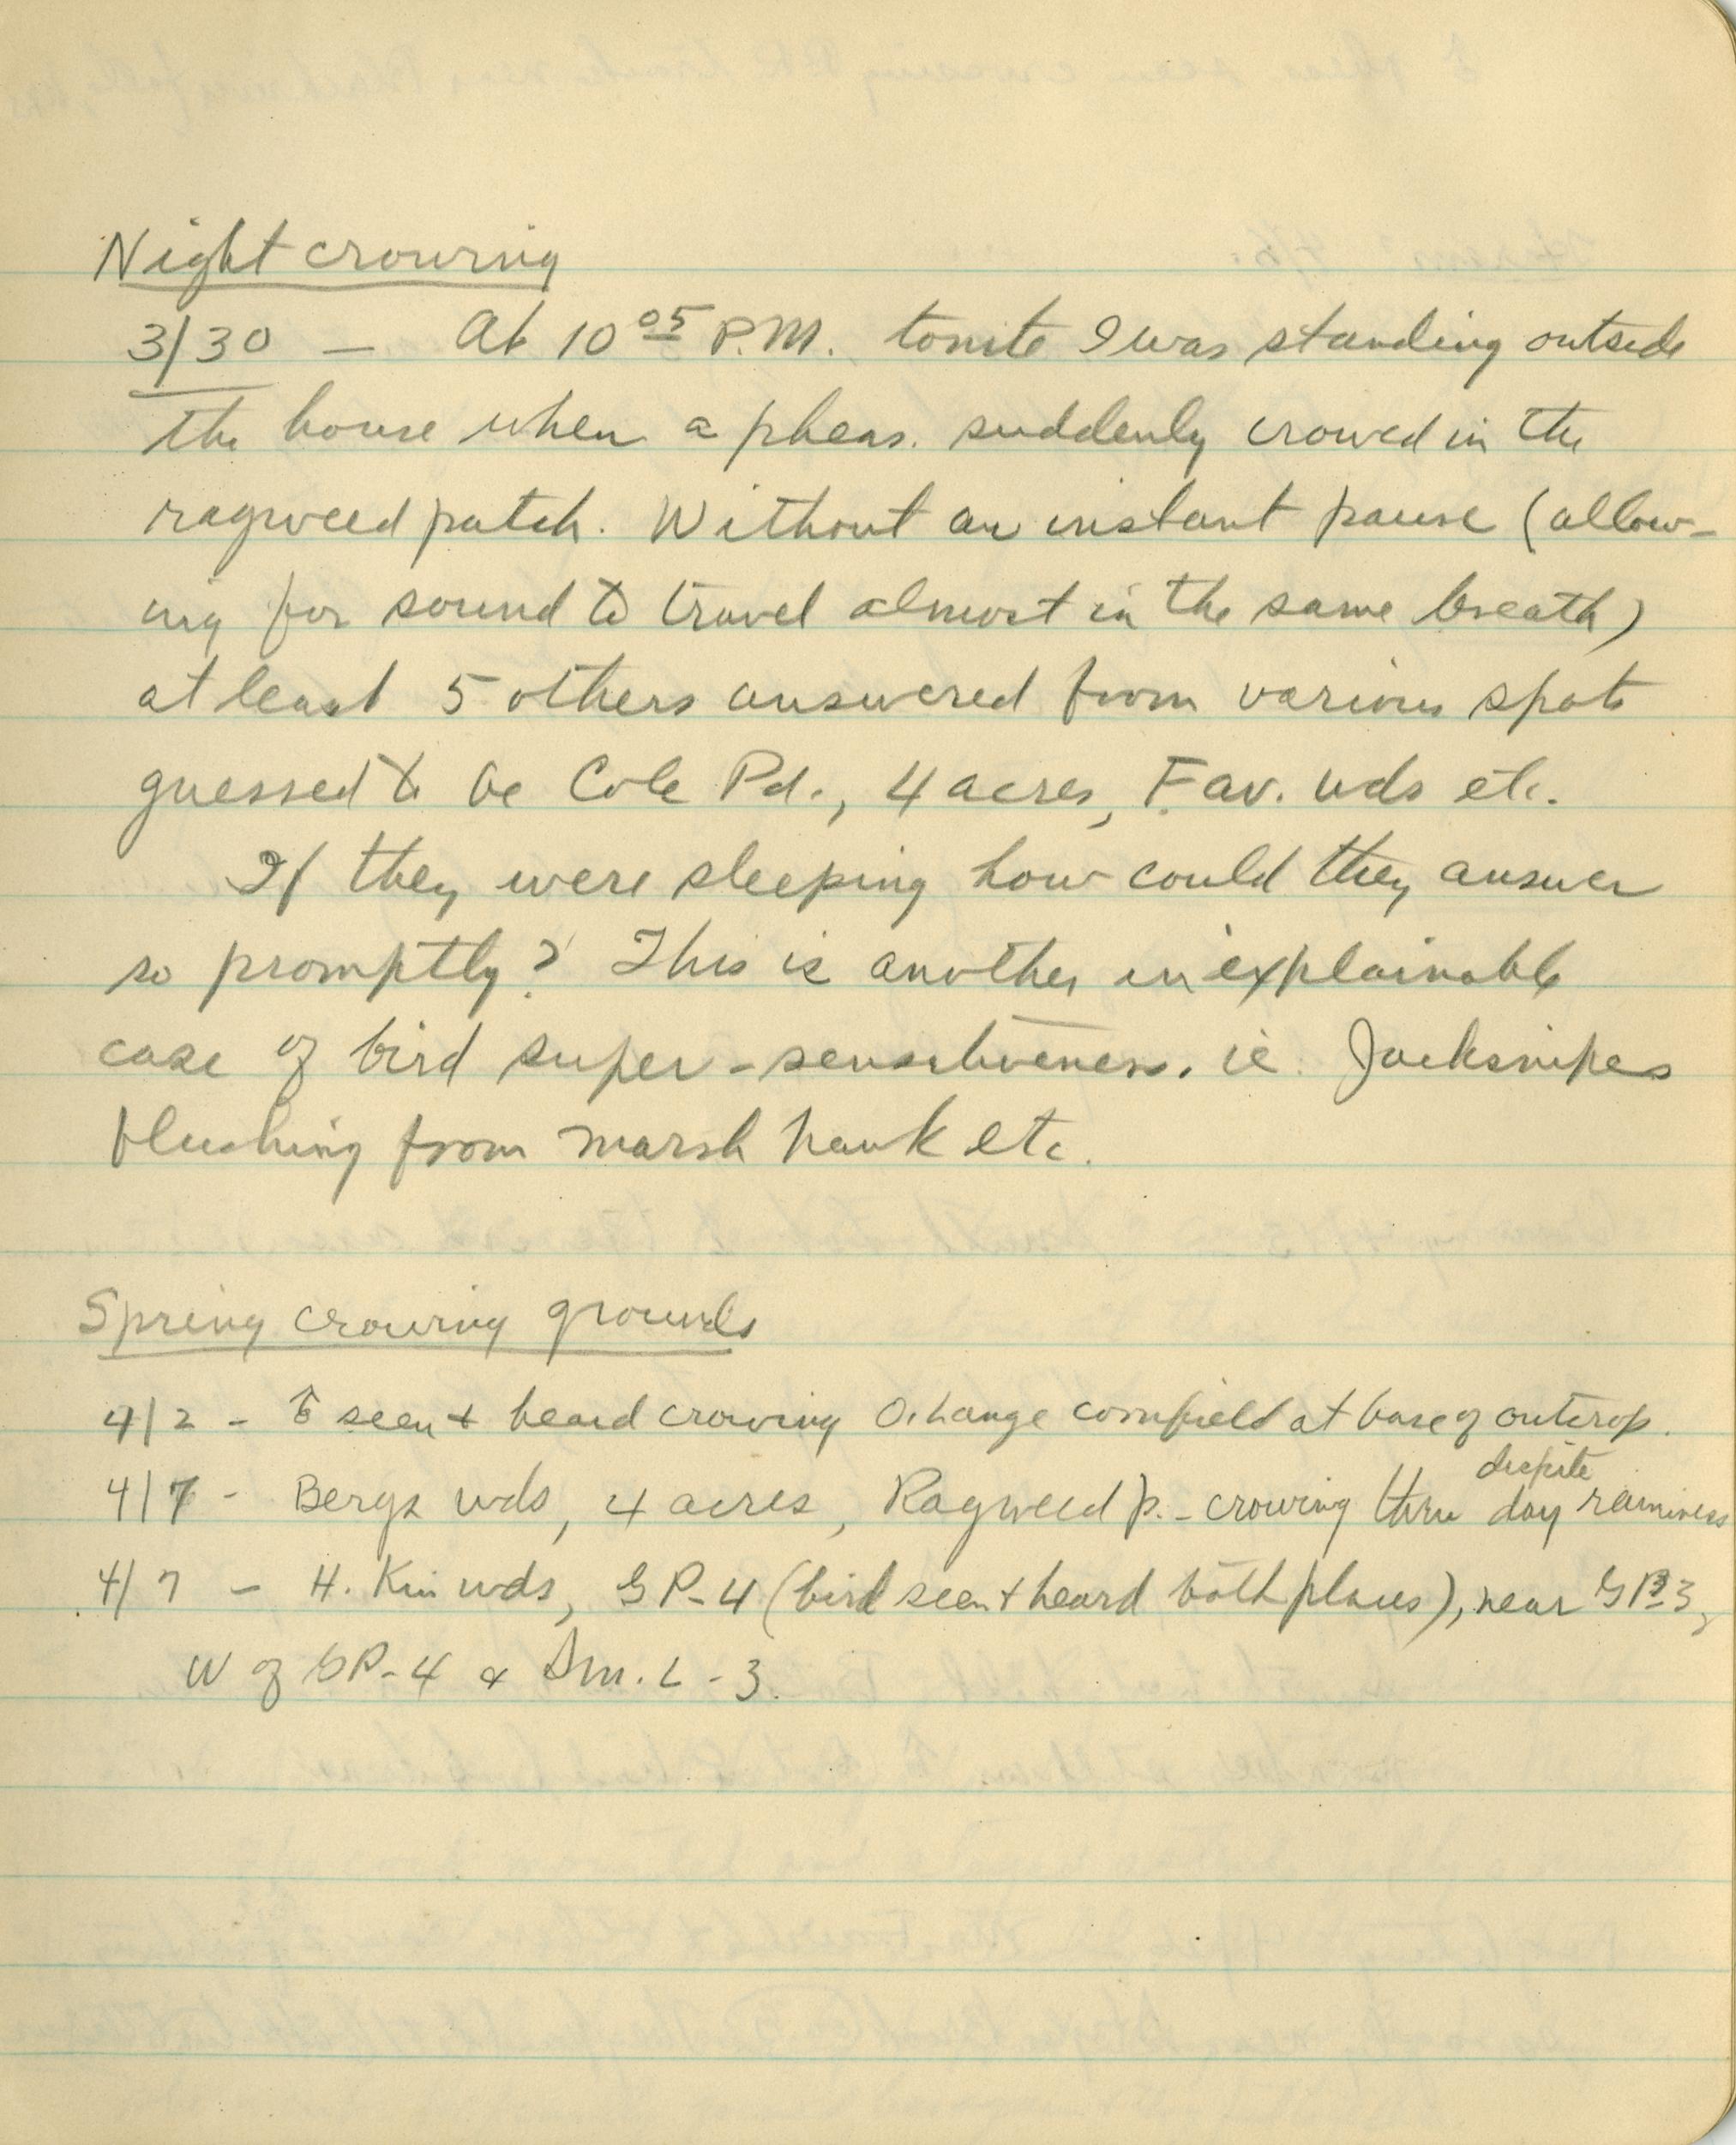 Night crowing
3/30 — At 10 05 P.M. tonite I was standing outside
the house when a pheas. suddenly crowed in the
ragweed patch. Without an instant pause (allow-
ing for sound to travel almost in the same breath)
at least 5 others answered from various spots
guessed to be Cole Pd., 4 acres, Fav. wds etc.
If they were sleeping how could they answer
so promptly? This is another inexplainable
case of bird super-sensitiveness. ie. Jacksnipes
flushing from marsh hawk etc.
Spring crowing grounds
4/2 - seen + heard crowing cornfield at base of outcrop.
despite
4/7 - Bergs wds, 4 acres, Ragweed p. - crowing thru day raininess
4/7 - H. wds, GP-4 (bird seen + heard both places), near GP-3,
W of GP-4 & Sm. L-3.